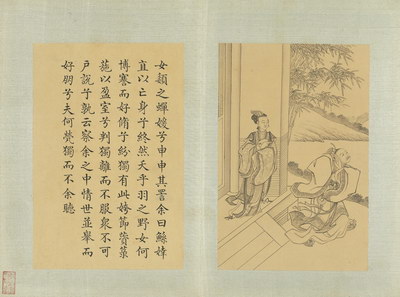 女嬃之嬋媛兮申申其詈余曰鯀婞
直以亡身兮終然夭乎羽之野女何
博謇而好脩兮紛獨有此姱節薋菉
葹以盈室兮判獨離而不服衆不可
戶說兮孰云察余之中情世並舉而
好朋兮夫何煢獨而不余聽